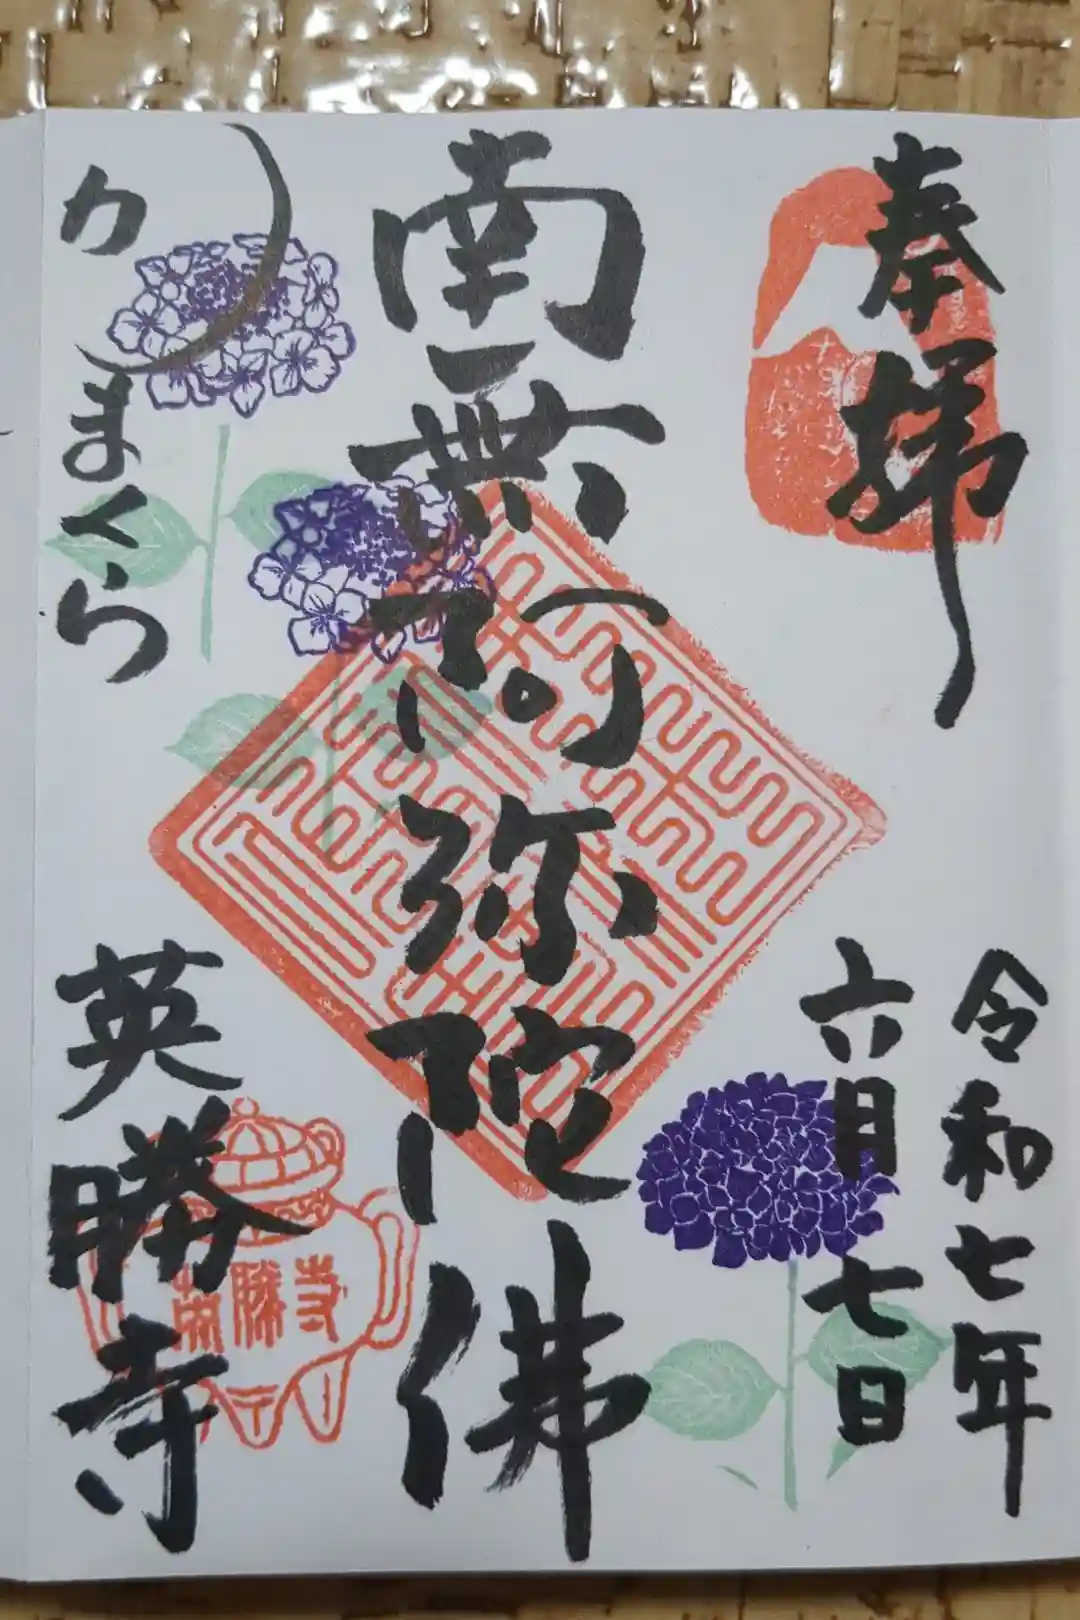 奉拝
令和七年
六月七日
南無阿弥陀佛
かまくら
英勝寺
英勝寺